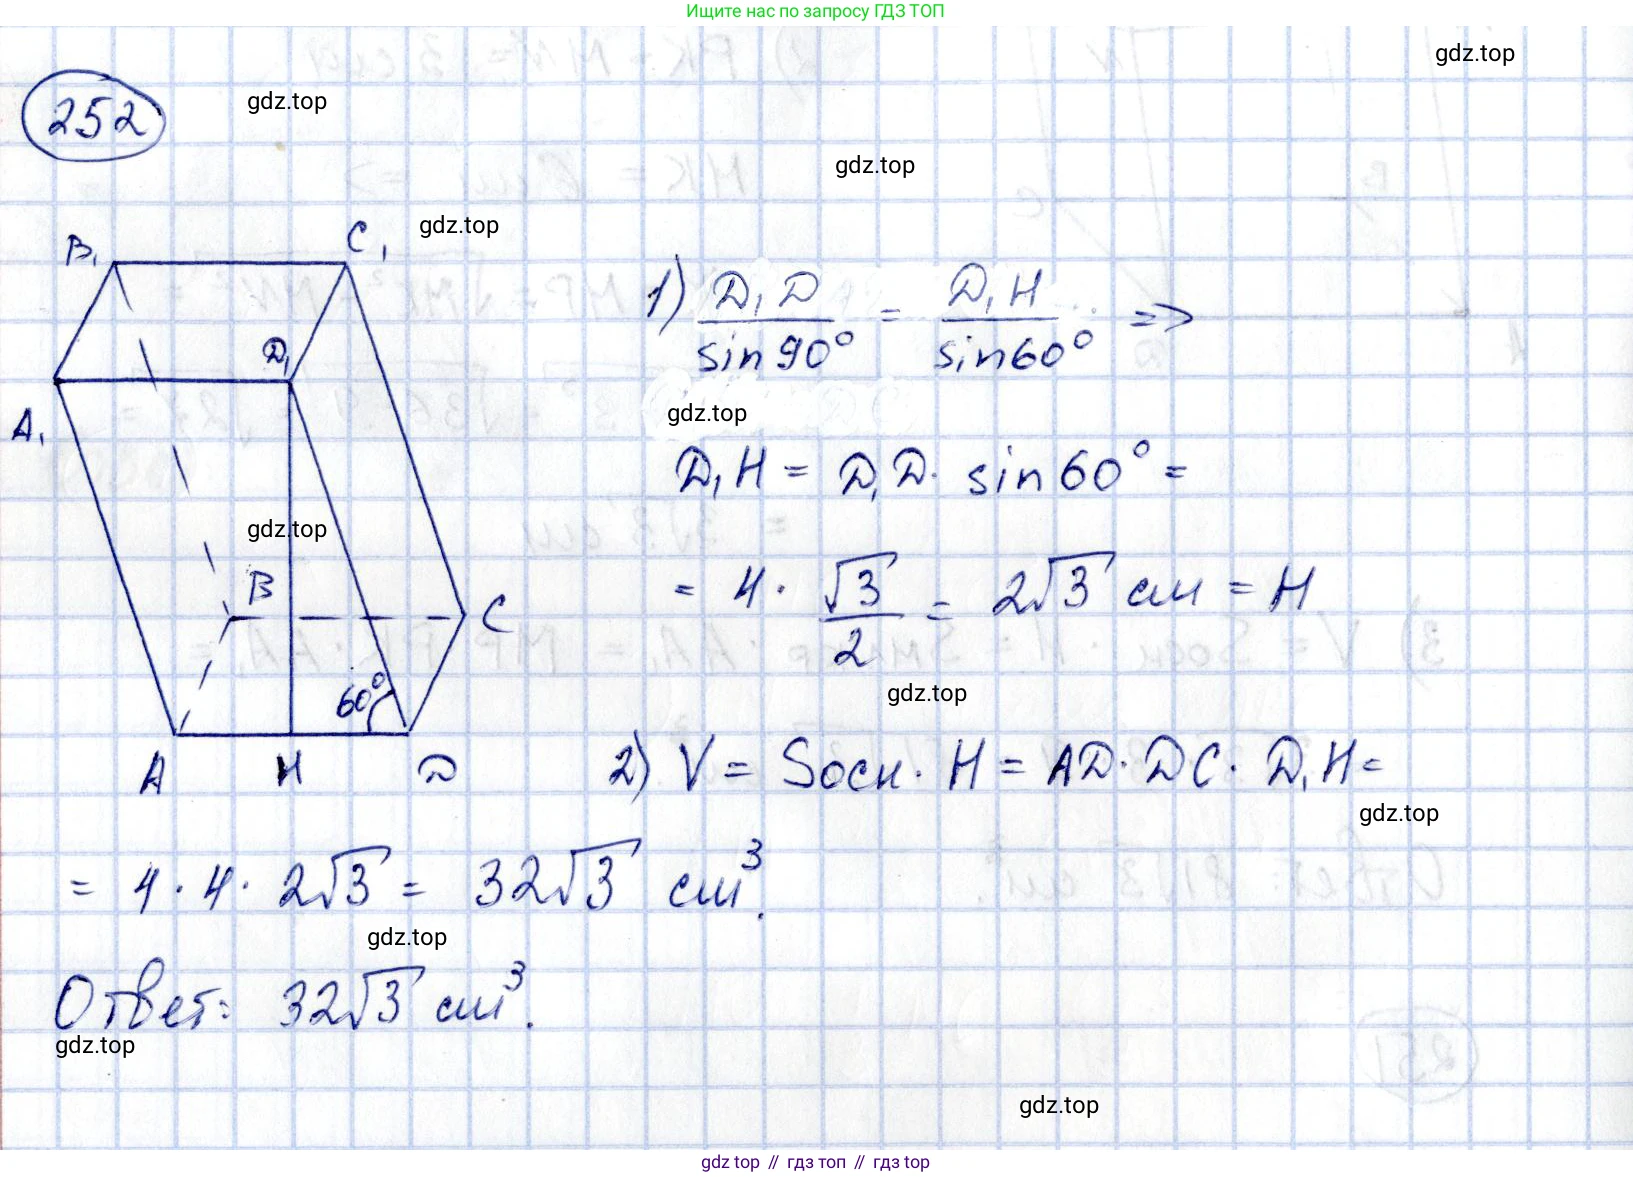 Ищите нас по запросу ГДЗ ТОП
gdz.top
252
gdz.top
gdz.top
gdz.top
B₁ C₁
D₁
A₁
1) D₁D / sin 90° = D₁H / sin 60° =>
gdz.top
D₁H = D₁D · sin 60° =
gdz.top
B
C
= 4 · √3/2 = 2√3 см = H
60°
gdz.top
A H D
2) V = Sосн · H = AD · DC · D₁H =
gdz.top
= 4 · 4 · 2√3 = 32√3 см³.
gdz.top
Ответ: 32√3 см³.
gdz.top
gdz.top
gdz top // гдз топ // гдз top